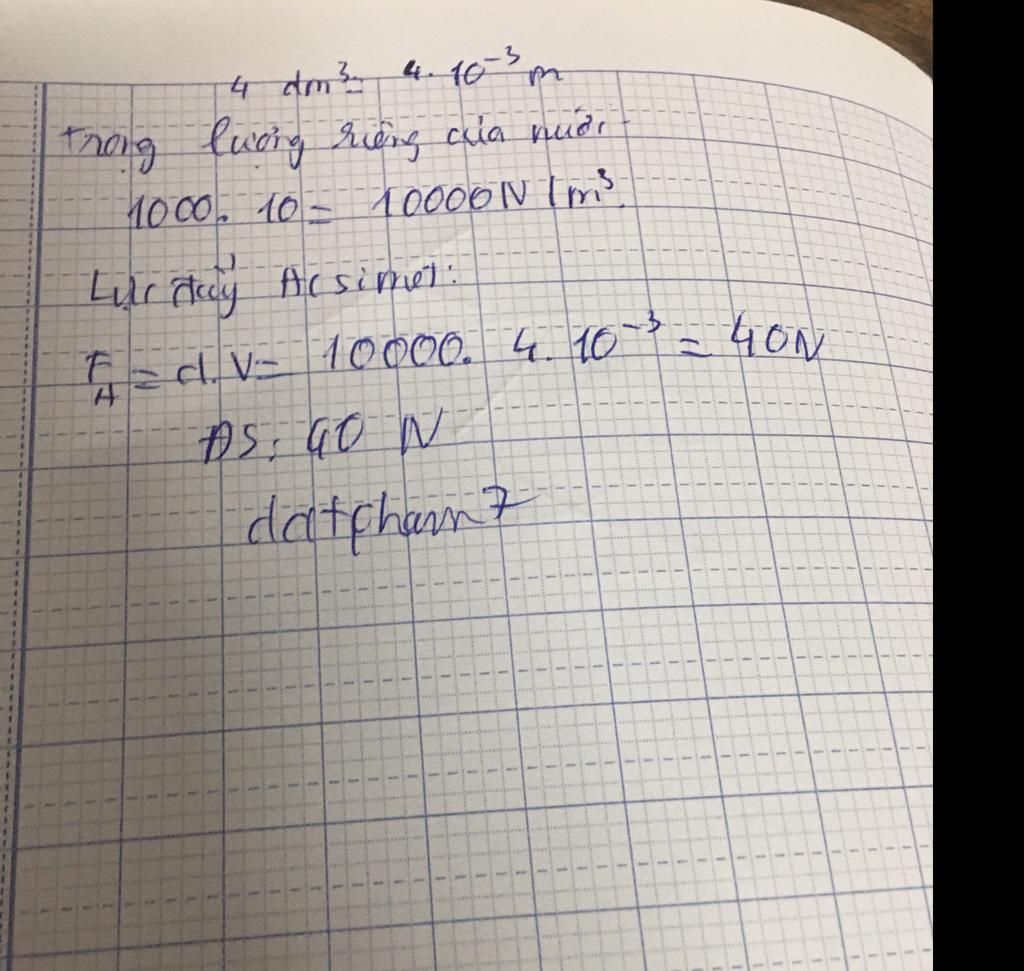 4 dm³= 4. 10⁻³ m
trọng lượng riêng của nước
1000. 10 = 10000N/m³.
Lực đẩy Acsimet:
F_A = d.V= 10000. 4. 10⁻³ = 40N
ĐS: 40 N
datpham7